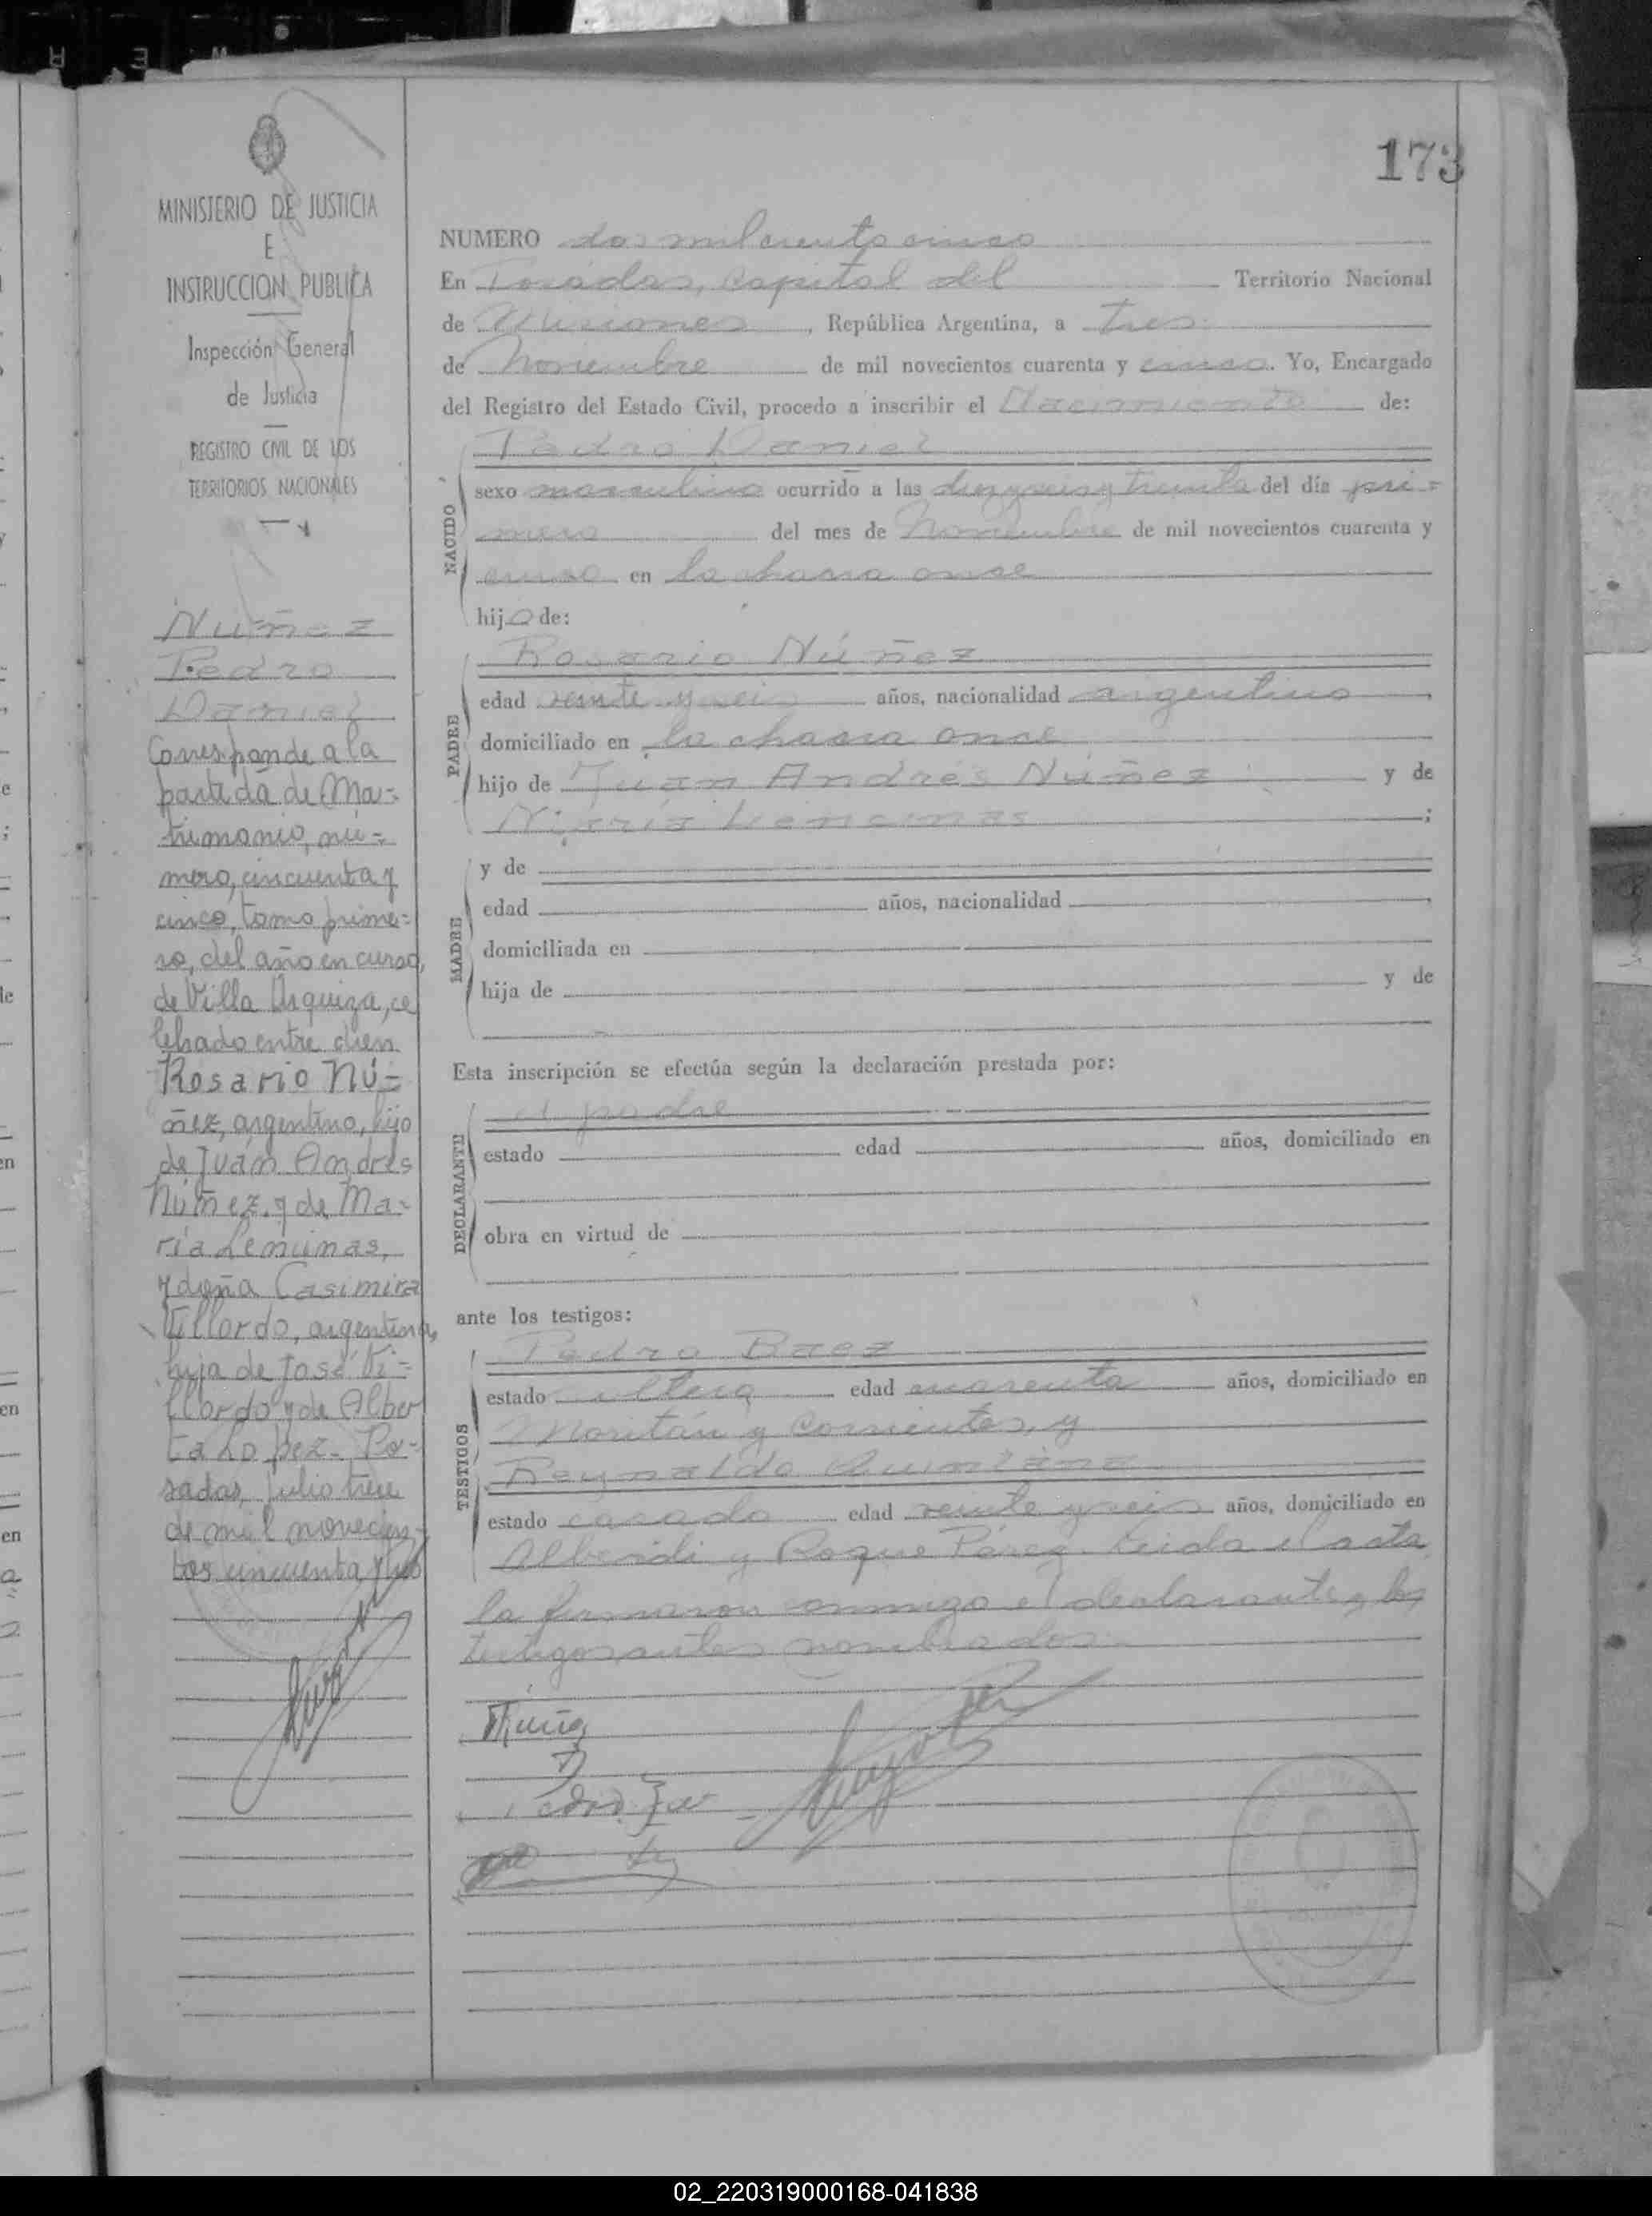 173
MINISTERIO DE JUSTICIA
E
INSTRUCCION PUBLICA
Inspección General
de Justicia
REGISTRO CIVIL DE LOS
TERRITORIOS NACIONALES
Núñez
Pedro
Daniel
Corresponde a la
partida de Ma=
trimonio, nú=
mero, cincuenta y
cinco, tomo prime=
ro, del año en curso,
de Villa Urquiza, ce
lebrado entre don
Rosario Nú=
ñez, argentino, hijo
de Juán Andrés
Núñez, y de Ma=
ría Lencinas,
y doña Casimira
Villordo, argentina,
hija de José Vi=
llordo y de Alber
ta Lopez. Po=
sadas, Julio trece
de mil novecien=
tos cincuenta y
NUMERO dos mil ciento cinco
En Posadas, Capital del Territorio Nacional
de Misiones, República Argentina, a tres
de Noviembre de mil novecientos cuarenta y cinco. Yo, Encargado
del Registro del Estado Civil, procedo a inscribir el Nacimiento de:
NACIDO
Pedro Daniel
sexo masculino ocurrido a las diez y seis y treinta del día pri=
mero del mes de Noviembre de mil novecientos cuarenta y
cinco en la chacra once
hijo de:
PADRE
Rosario Núñez
edad veinte y seis años, nacionalidad argentino,
domiciliado en la chacra once
hijo de Juan Andrés Núñez y de
María Lencinas;
MADRE
y de
edad años, nacionalidad
domiciliada en
hija de y de
Esta inscripción se efectúa según la declaración prestada por:
DECLARANTE
el padre
estado edad años, domiciliado en
obra en virtud de
ante los testigos:
TESTIGOS
Pedro Baez
estado soltero edad cuarenta años, domiciliado en
Moritán y Corrientes, y
Reynaldo Quintana
estado casado edad veinte y seis años, domiciliado en
Alberdi y Roque Pérez. Leida el acta,
la firmaron conmigo el declarante y los
testigos antes nombrados.
02_220319000168-041838